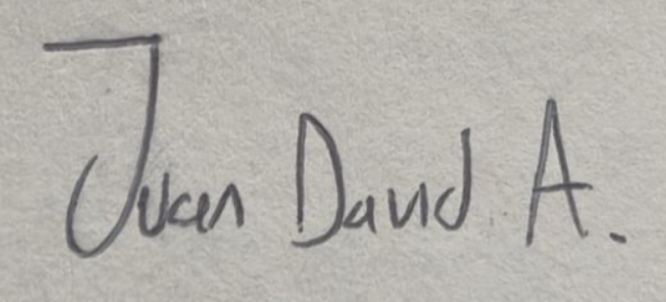 Juan David A.